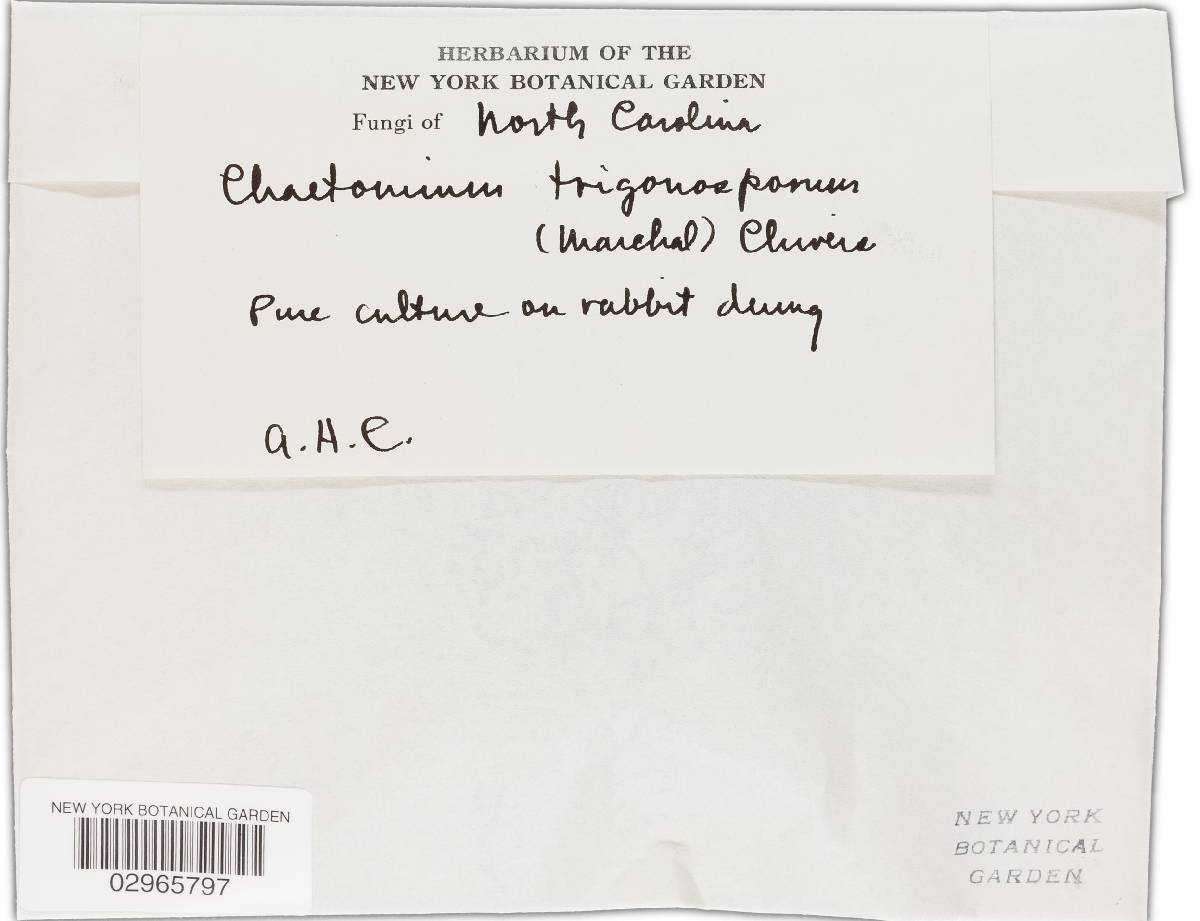 HERBARIUM OF THE
NEW YORK BOTANICAL GARDEN
Fungi of North Carolina
Chaetomium trigonosporum
(Marchal) Chivers
Pure culture on rabbit dung
A.H.C.
NEW YORK BOTANICAL GARDEN
02965797
NEW YORK
BOTANICAL
GARDEN